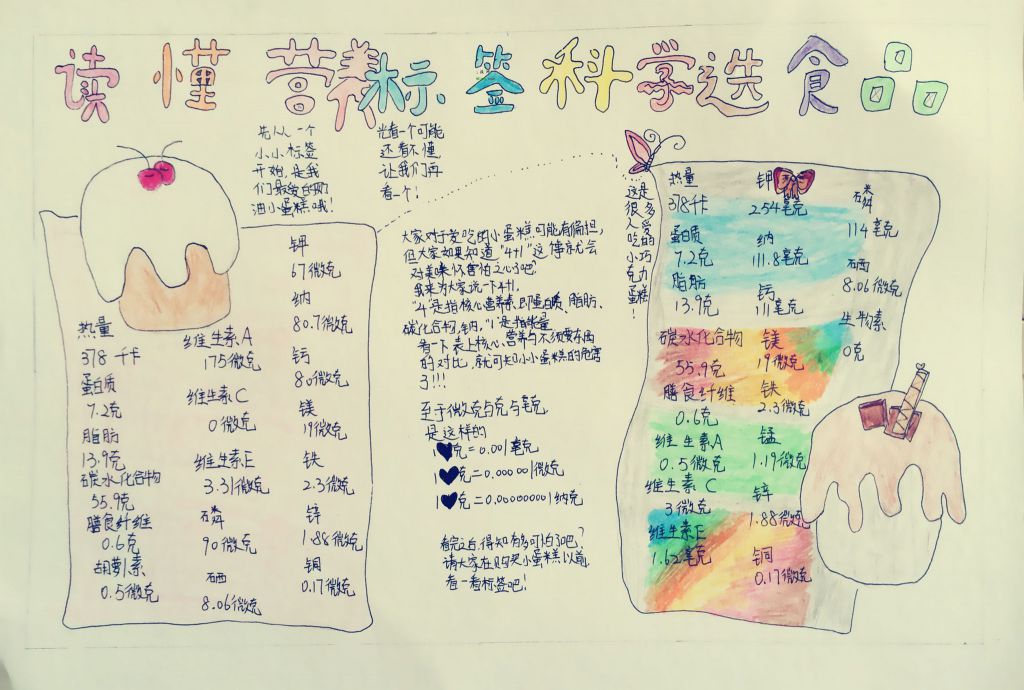 读懂营养标签科学选食品
先从一个
小小标签
开始，是我
们最爱的奶
油小蛋糕哦！
光看一个可能
还看不懂，
让我们再
看一个！
热量
378千卡
蛋白质
7.2克
脂肪
13.9克
碳水化合物
55.9克
膳食纤维
0.6克
胡萝素
0.5微克
维生素A
175微克
维生素C
0微克
维生素E
3.31微克
磷
90微克
硒
8.06微克
钾
67微克
纳
80.7微克
钙
80微克
镁
19微克
铁
2.3微克
锌
1.88微克
铜
0.17微克
大家对于爱吃的小蛋糕可能有偏担，
但大家如果知道"4+1"这件事就会
对美味怀害怕之心了吧？
我来为大家说一下4+1，
"4"是指核心营养素，即蛋白质、脂肪、
碳化合物，钠，"1"是指能量
看一下表上核心营养与不须要东西
的对比，就可知小小蛋糕的危害
了！！！
至于微克与克与毫克
是这样的
1克=0.001毫克
1克=0.000001微克
1克=0.000000001纳克
看完之后，得知有多可怕了吧？
请大家在购买小蛋糕以前
看一看标签吧！
这是很多人爱吃的小巧克力蛋糕！
热量
378千卡
蛋白质
7.2克
脂肪
13.9克
碳水化合物
55.9克
膳食纤维
0.6克
维生素A
0.5微克
维生素C
3微克
维生素E
1.62毫克
钾
254毫克
纳
111.8毫克
钙
111毫克
镁
19微克
铁
2.3微克
锰
1.19微克
锌
1.88微克
铜
0.17微克
磷
114毫克
硒
8.06微克
生物素
0克